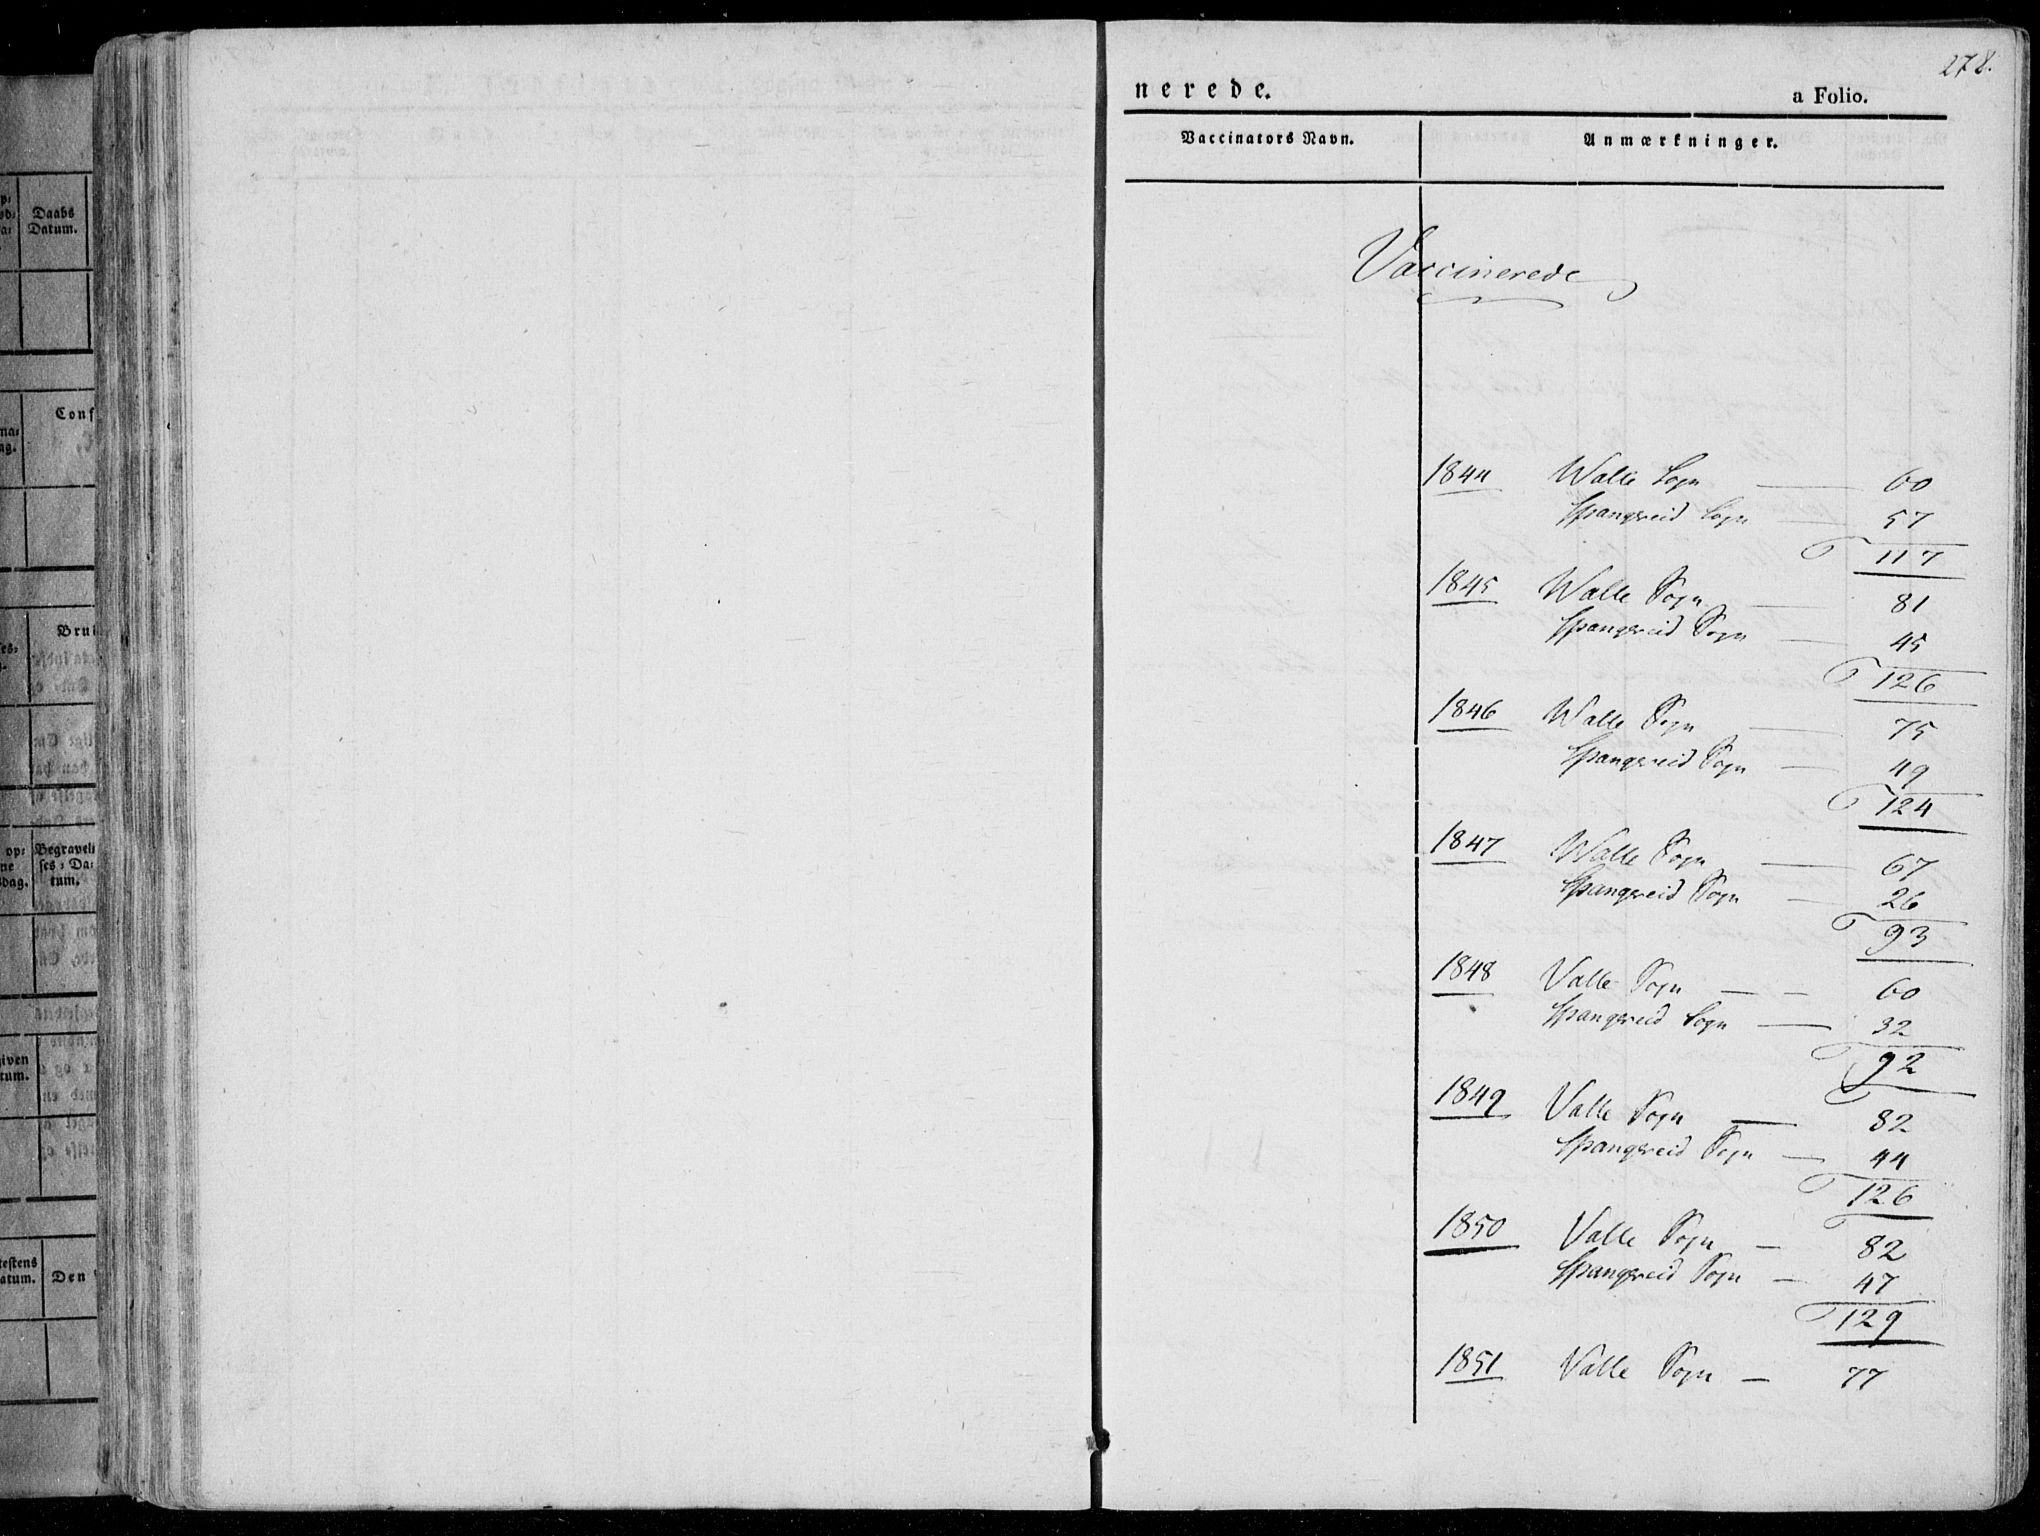 278.
nerede.
a Folio.
Vaccinators Navn.
Anmærkninger.
Vaccinerede
1844 Walle Sogn — 60
Spangereid Sogn — 57
117
1845 Walle Sogn — 81
Spangereid Sogn — 45
126
1846 Walle Sogn — 75
Spangereid Sogn — 49
124
1847 Walle Sogn — 67
Spangereid Sogn — 26
93
1848 Valle Sogn — — 60
Spangereid Sogn — 32
92
1849 Valle Sogn — 82
Spangereid Sogn — 44
126
1850 Valle Sogn — 82
Spangereid Sogn — 47
129
1851 Valle Sogn — 77
Daabs
Datum.
Conf
Brui
op: Begravels
ses: Da:
dag. tum.
given
tum.
testens
atum. Den